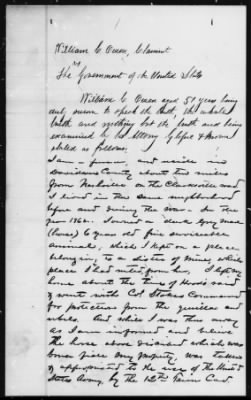 William C Owen, Claimant
vs
The Government of the United States
William C Owen aged 51 years being
duly sworn to speak the truth, the whole
truth and nothing but the truth and being
examined by his Attorney
stated as follows
I am a farmer, and reside in
Davidson County about ten miles
from Nashville on the Clarksville road
I lived in this same neighborhood
before and during the war. In the
year 1862 I owned a
(horse) 6 years old fine serviceable
animal, which I kept on a place
belonging to a sister of mine, which
place I had rented from her. I left my
home about the time of Hoods raid
& went with Col Stokes Command
for protection from the guerillas and
rebels. And while I was thus away
as I am informed and believe
the horse above described which was
bona fide my property, was taken
& appropriated to the use of the United
States Army, by the 12th Tenn Cav.